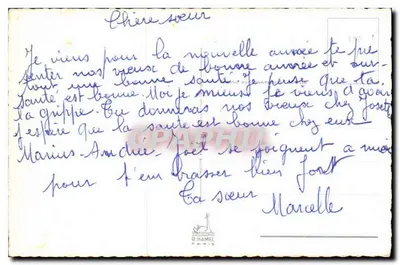 Chère sœur
Je viens pour la nouvelle année te pré
senter nos vœux de bonne année et sur-
tout une bonne santé. Je pense que ta
santé est bonne. Moi je mieux je viens d'avoir
la grippe. Tu donneras nos vœux chez
j'espère que la santé est bonne chez eux
Marius - Andrée - Joët se joignent a moi
pour t'em brasser bien fort
Ta sœur
Marcelle
D'HAMEL
PARIS